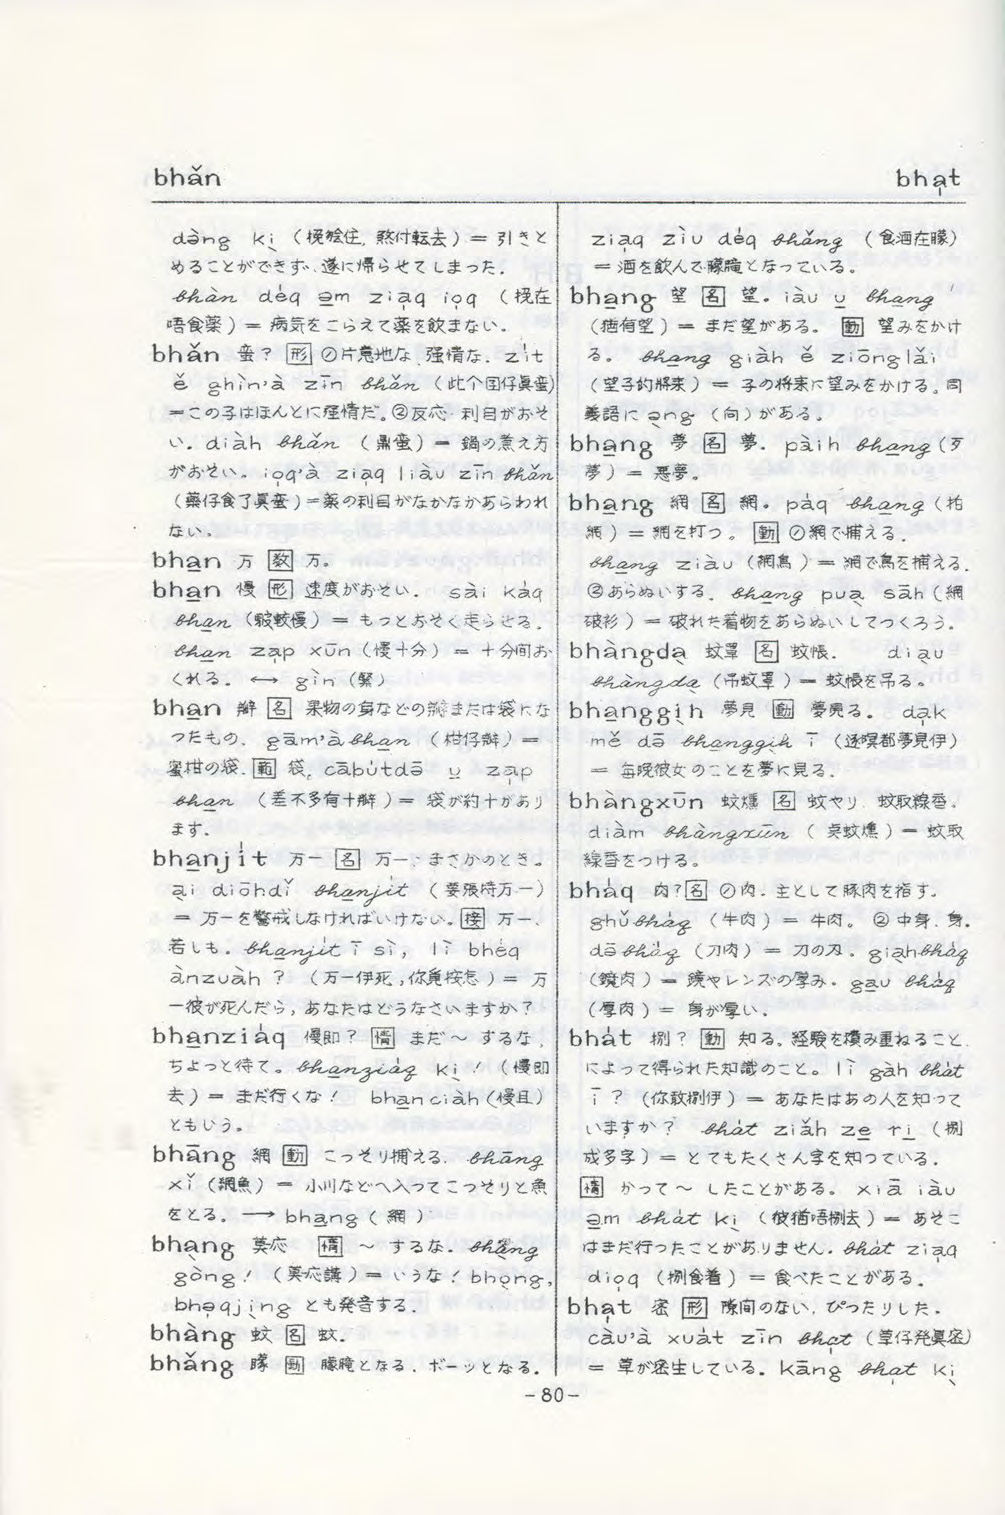 bhǎn
bha̍t
dǝ̀ng kị (挽絵住, 煞付転去) = 引きと
めることができず、遂に帰らせてしまった.
bhàn dėq ạm ziạq iọq (挽在
唔食薬) = 病気をこらえて薬を飲まない.
bhǎn 蛮? [形] ①片意地な, 強情な. zi̍t
ě ghìn'à zīn bhǎn (此个囝仔眞蛮)
=この子はほんとに強情だ. ②反応・利目がおそ
い. diàh bhǎn (鼎蛮) = 鍋の煮え方
がおそい. iọq'à ziạq liàu zīn bhǎn
(薬仔食了眞蛮)=薬の利目がなかなかあらわれ
ない.
bhạn 万 [数] 万。
bhạn 慢 [形] 速度がおそい. sài kȧq
bhạn (駛較慢) = もっとおそく走らせる.
bhạn zạp xūn (慢十分) = 十分間お
くれる. ←→ gìn (緊)
bhạn 瓣 [名] 果物の身などの瓣または袋にな
ったもの. gām'à bhạn (柑仔瓣) =
蜜柑の袋. [範] 袋. cābu̍tdō ụ zạp
bhạn (差不多有十瓣) = 袋が約十があり
ます.
bhạnji̍t 万一 [名] 万一, まさかのとき.
ại diōhdǐ bhạnji̍t (要張持万一)
= 万一を警戒しなければいけない. [接] 万一、
若しも. bhạnji̍t ī sì, lì bhėq
ànzuàh ? (万一伊死, 你覓按怎) = 万
一彼が死んだら, あなたはどうなさいますか?
bhạnziȧq 慢即? [情] まだ〜するな,
ちょっと待て。 bhạnziȧq kị (慢即
去) = まだ行くな! bhạnciàh (慢且)
ともいう。
bhāng 網 [動] こっそり捕える. bhāng
xǐ (網魚) = 小川などへ入ってこっそりと魚
をとる. → bhạng (網)
bhạng 莫応 [情] 〜するな. bhạng
gòng! (莫応講) = いうな! bhọng,
bhǝqjịng とも発音する.
bhàng 蚊 [名] 蚊.
bhǎng 朦 [動] 朦朧となる, ボーッとなる.
ziạq ziù dėq bhǎng (食酒在朦)
= 酒を飲んで朦朧となっている。
bhạng 望 [名] 望。 iàu ụ bhạng
(猶有望) = まだ望がある。 [動] 望みをかけ
る。 bhạng giàh ě ziōnglǎi
(望子的将来) = 子の将来に望みをかける。同
義語に ǝ̣ng (向) がある.
bhạng 夢 [名] 夢. pàih bhạng (歹
夢) = 悪夢.
bhạng 網 [名] 網。 pȧq bhạng (拍
網) = 網を打つ。 [動] ①網で捕える.
bhạng ziàu (網鳥) = 網で鳥を捕える.
②あらぬいする. bhạng puạ sāh (網
破衫) = 破れた着物をあらぬいしてつくろう.
bhàngdạ 蚊罩 [名] 蚊帳. diạu
bhàngdạ (吊蚊罩) = 蚊帳を吊る。
bhạnggịh 夢見 [動] 夢見る. dạk
mě dō bhạnggịh ī (逐暝都夢見伊)
= 毎晩彼女のことを夢に見る.
bhàngxūn 蚊燻 [名] 蚊やり, 蚊取線香.
diàm bhàngxūn (点蚊燻) = 蚊取
線香をつける。
bhȧq 肉? [名] ①肉, 主として豚肉を指す.
ghǔbhȧq (牛肉) = 牛肉。 ②中身, 身.
dōbhȧq (刀肉) = 刀の刃. giạhbhȧq
(鏡肉) = 鏡やレンズの厚み. gạu bhȧq
(厚肉) = 身が厚い.
bha̍t 捌? [動] 知る, 経験を積み重ねること
によって得られた知識のこと。 lì gàh bha̍t
ī ? (你敢捌伊) = あなたはあの人を知って
いますか? bha̍t ziǎh zẹ rị (捌
成多字) = とてもたくさん字を知っている.
[情] かって〜したことがある。 xiā iàu
ạm bha̍t kị (彼猶唔捌去) = あそこ
はまだ行ったことがありません. bha̍t ziạq
diọq (捌食着) = 食べたことがある.
bhạt 密 [形] 隙間のない, ぴったりした.
càu'à xua̍t zīn bhạt (草仔発眞密)
= 草が密生している. kāng bhạt kị
-80-